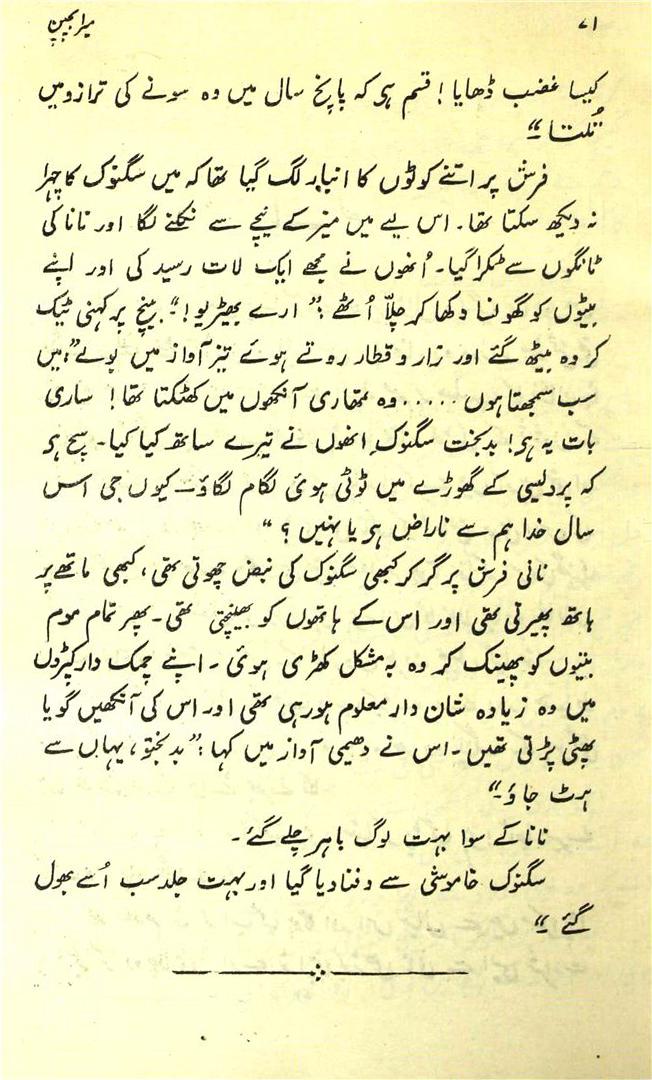 ۷۱ میرا بچپن
کیسا غضب ڈھایا! قسم ہی کہ پانچ سال میں وہ سونے کی ترازو میں
تُلتا۔“
فرش پر اتنے کوٹوں کا انبار لگ گیا تھا کہ میں سگنوک کا چہرا
نہ دیکھ سکتا تھا۔ اس لیے میں میز کے نیچے سے نکلنے لگا اور نانا کی
ٹانگوں سے ٹکرا گیا۔ اُنھوں نے مجھے ایک لات رسید کی اور اپنے
بیٹوں کو گھونسا دکھا کر چلّا اُٹھے :” ارے بھیڑیو!“ بینچ پر کہنی ٹیک
کر وہ بیٹھ گئے اور زار و قطار روتے ہوئے تیز آواز میں بولے :”میں
سب سمجھتا ہوں ..... وہ تمھاری آنکھوں میں کھٹکتا تھا! ساری
بات یہ ہی! بدبخت سگنوک انھوں نے تیرے ساتھ کیا کیا۔ سچ ہی
کہ پردیسی کے گھوڑے میں ٹوٹی ہوئی لگام لگاؤ۔ کیوں جی اس
سال خدا ہم سے ناراض ہی یا نہیں ؟“
نانی فرش پر گر کر کبھی سگنوک کی نبض چھوتی تھی، کبھی ماتھے پر
ہاتھ پھیرتی تھی اور اس کے ہاتھوں کو بھینچتی تھی۔ پھر تمام موم
بتیوں کو پھینک کر وہ بہ مشکل کھڑی ہوئی ۔ اپنے چمک دار کپڑوں
میں وہ زیادہ شان دار معلوم ہو رہی تھی اور اس کی آنکھیں گویا
پھٹی پڑتی تھیں ۔ اس نے دھیمی آواز میں کہا :” بدبختو، یہاں سے
ہٹ جاؤ۔“
نانا کے سوا بہت لوگ باہر چلے گئے۔
سگنوک خاموشی سے دفنا دیا گیا اور بہت جلد سب اُسے بھول
گئے ۔“